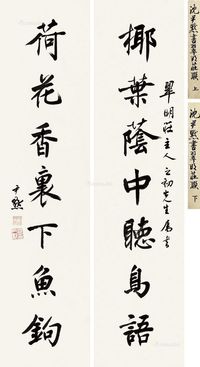 椰葉蔭中聽鳥語
翠明莊主人立初先生屬書
荷花香裏下魚鉤
尹默
沈尹默書翠明莊聯 上
沈尹默書翠明莊聯 下